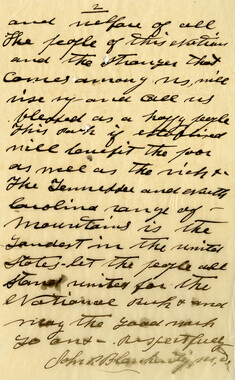 2
and welfare of all
The people of this Nation
and the stranger that
Comes among us, will
rise up and Call us
blessed as a happy people
This park if established
will benefit the poor
as well as the rich &
The Tennessee and North
Carolina range of
Mountains is the
Grandest in the united
States - let the people all
Stand united for the
National Park & and
may the good work
go on & - respectfully
John P. M.D.